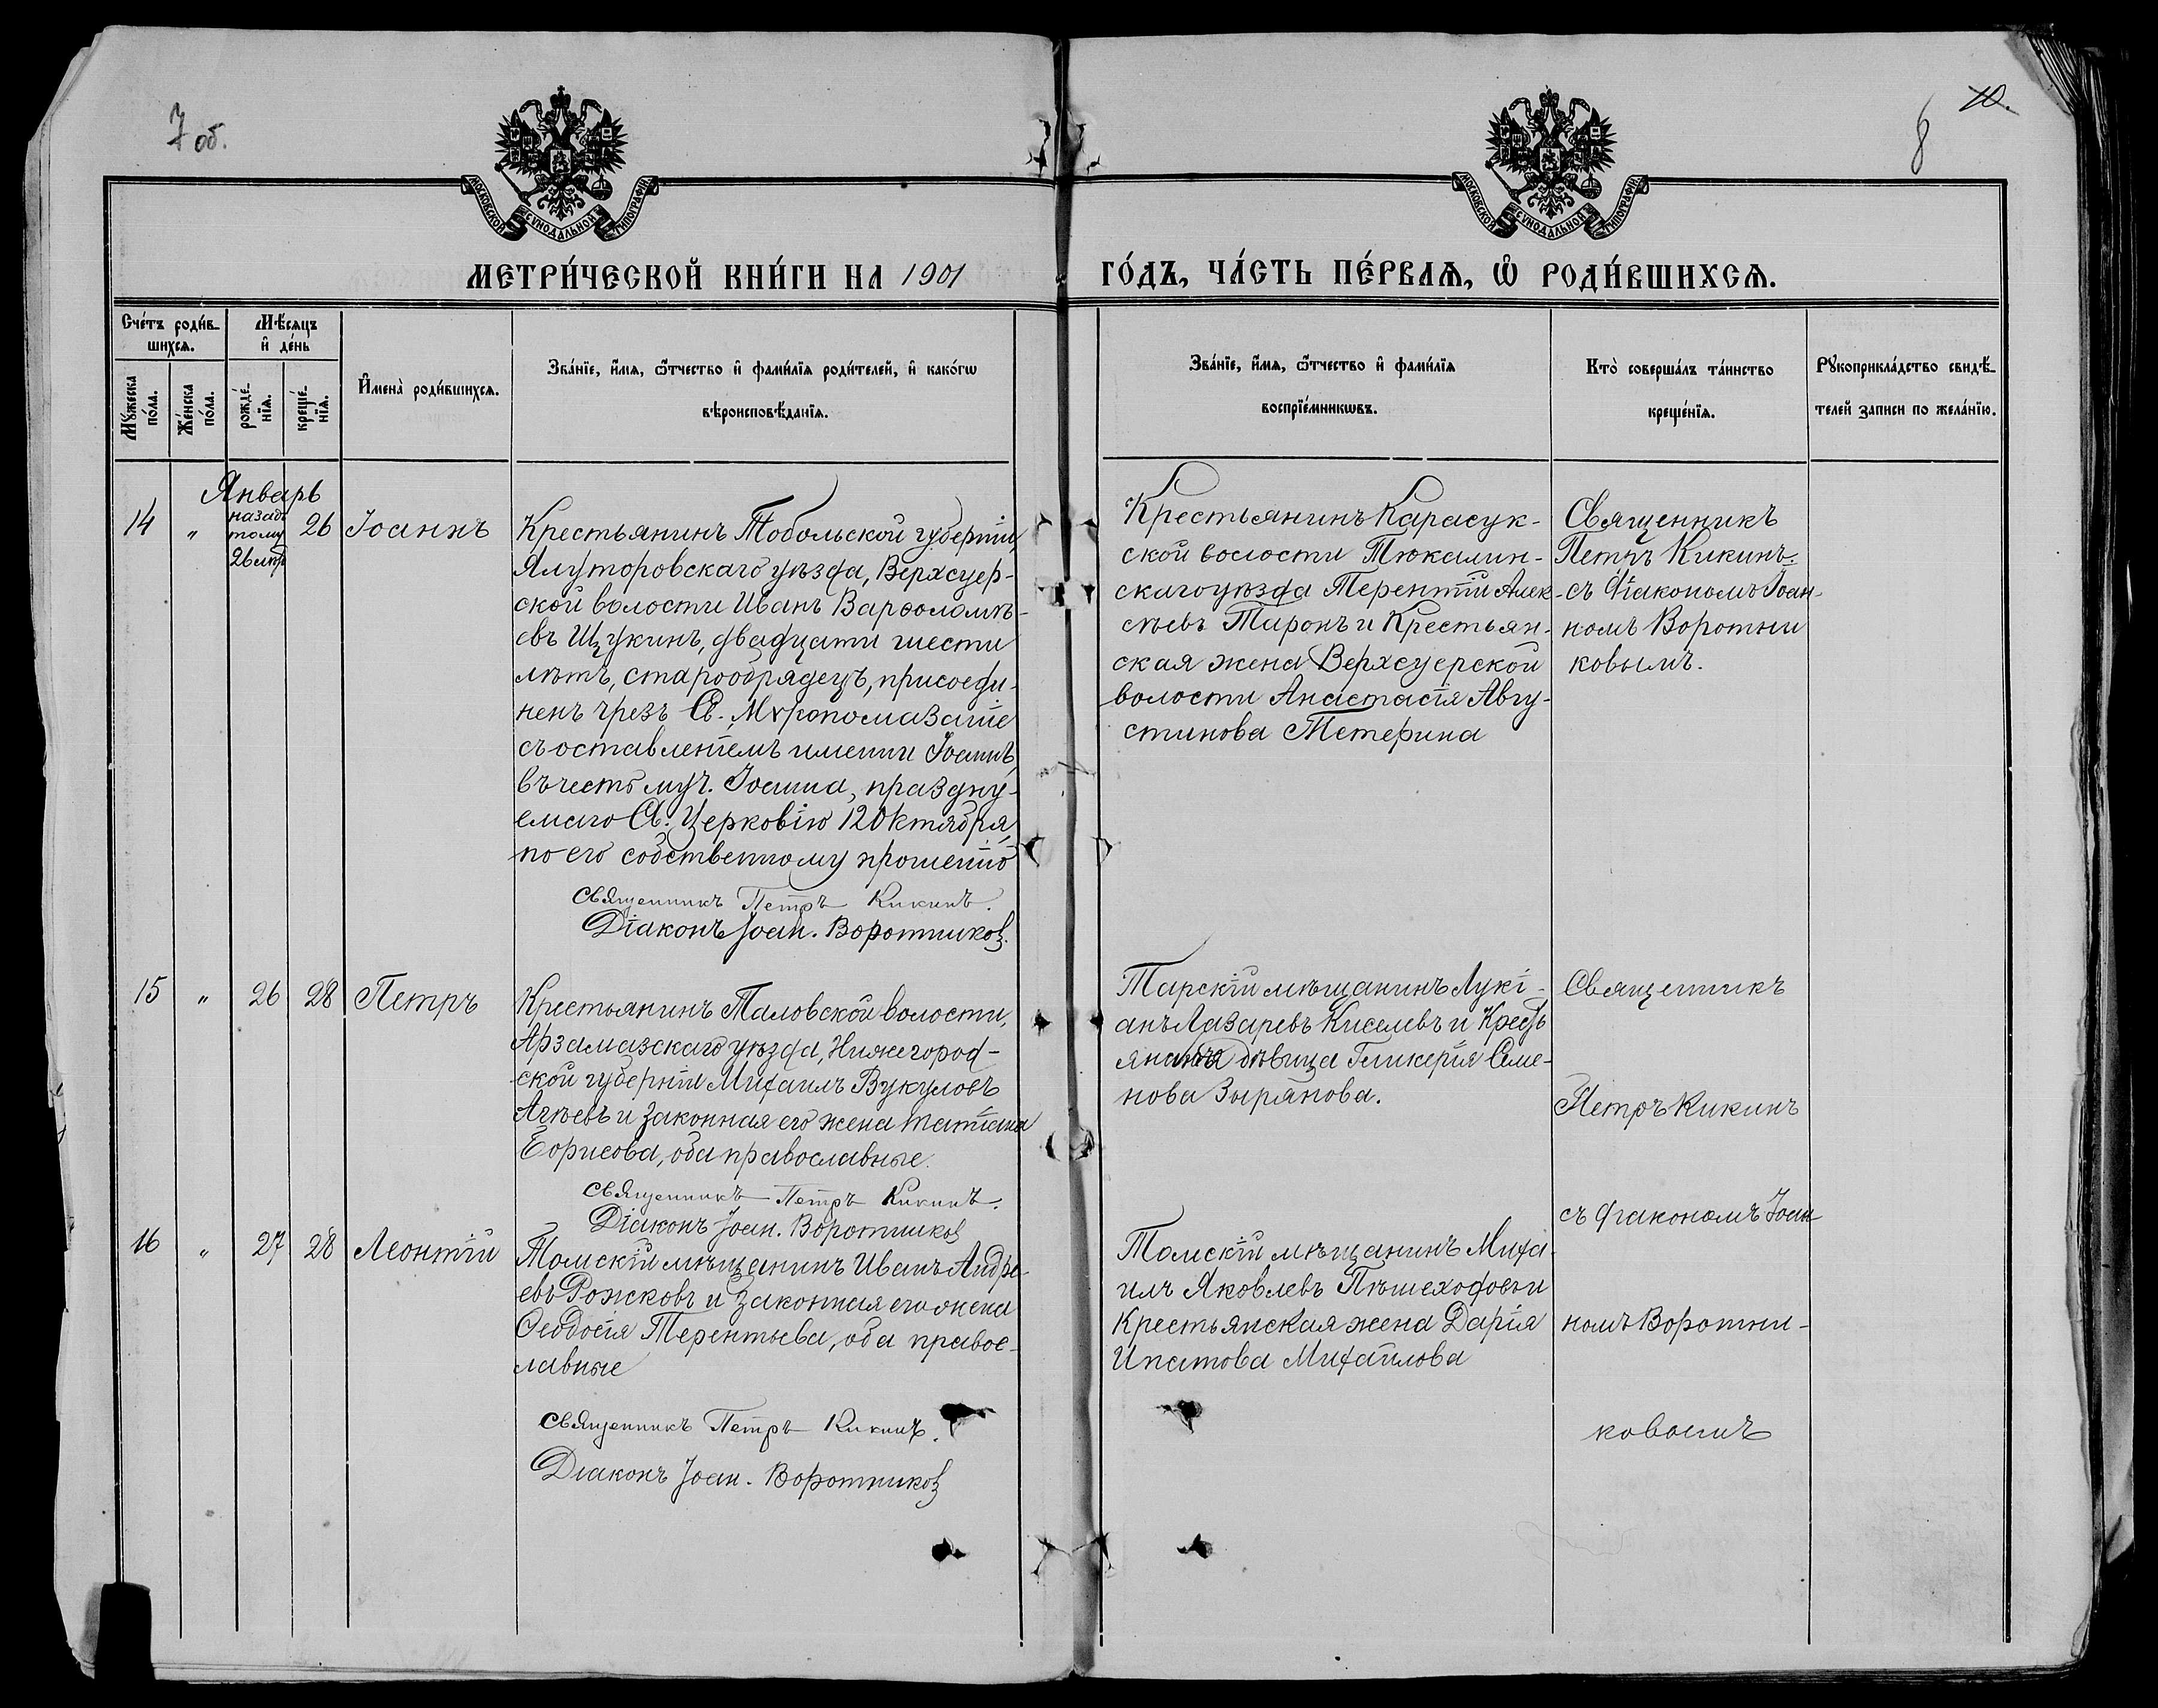 7 об.
10.
8
МОСКОВСКОЙ СѴНОДАЛЬНОЙ ТИПОГРАФІИ
МОСКОВСКОЙ СѴНОДАЛЬНОЙ ТИПОГРАФІИ
МЕТРИ́ЧЕСКОЙ КНИ́ГИ НА 1901
ГО́ДЪ, ЧА́СТЬ ПЕ́РВАѦ, Ѡ҆ РОДИ́ВШИХСѦ.
Сче́тъ роди́в-
шихсѧ.
Мѣ́сяцъ
и҆ де́нь
Мꙋ́жеска по́ла.
Же́нска по́ла.
рожде́-
нїѧ.
креще́-
нїѧ.
И҆мена̀ роди́вшихсѧ.
Зва́нїе, и҆́мѧ, ѻ҆́тчество и҆ фами́лїѧ роди́телей, и҆ како́гѡ
вѣроисповѣ́данїѧ.
Зва́нїе, и҆́мѧ, ѻ҆́тчество и҆ фами́лїѧ
воспрїе́мникѡвъ.
Кто̀ соверша́лъ та́инство
креще́нїѧ.
Рꙋкоприкла́дство свидѣ́-
телей записи по жела́нїю.
Январь
14 " назадъ тому 26 лѣтъ 26 Іоаннъ
Крестьянинъ Тобольской губерніи,
Ялуторовскаго уѣзда, Верхсуер-
ской волости Иванъ Варѳоломѣ-
евъ Щукинъ, двадцати шести
лѣтъ, старообрядецъ, присоеди-
ненъ чрезъ Св. Мѵропомазаніе
съ оставленіемъ имени Іоаннъ,
въ честь муч. Іоанна, праздну-
емаго Св. Церковію 12 Октября,
по его собственному прошенію
Священникъ Петръ Кикинъ.
Діаконъ Іоан. Воротников.
Крестьянинъ Карасук-
ской волости Тюкалин-
скаго уѣзда Терентій Алек-
сѣевъ Таронъ и Крестьян-
ская жена Верхсуерской
волости Анастасія Авгу-
стинова Тетерина
Священникъ
Петръ Кикинъ
съ діакономъ Іоан-
номъ Воротни
ковымъ.
15 " 26 28 Петръ
Крестьянинъ Таловской волости,
Арзамазскаго уѣзда, Нижегород-
ской губерніи Михаилъ Вукуловъ
Агѣевъ и законная его жена Татіана
Борисова, оба православные.
Священникъ Петръ Кикинъ.
Діаконъ Іоан. Воротников
Тарскій мѣщанинъ Лукі-
анъ Лазаревъ Киселевъ и Кресть
дѣвица Гликерія Семе-
нова Зырянова.
Священникъ
Петръ Кикинъ
съ діакономъ Іоан
номъ Воротни-
ковымъ
16 " 27 28 Леонтій
Томскій мѣщанинъ Иванъ Андре-
евъ Рожковъ и законная его жена
Ѳеодосія Терентьева, оба правос-
лавные
Священникъ Петръ Кикинъ.
Діаконъ Іоан. Воротников
Томскій мѣщанинъ Миха-
илъ Яковлевъ Пѣшеходовъ и
Крестьянская жена Дарія
Ипатова Михайлова